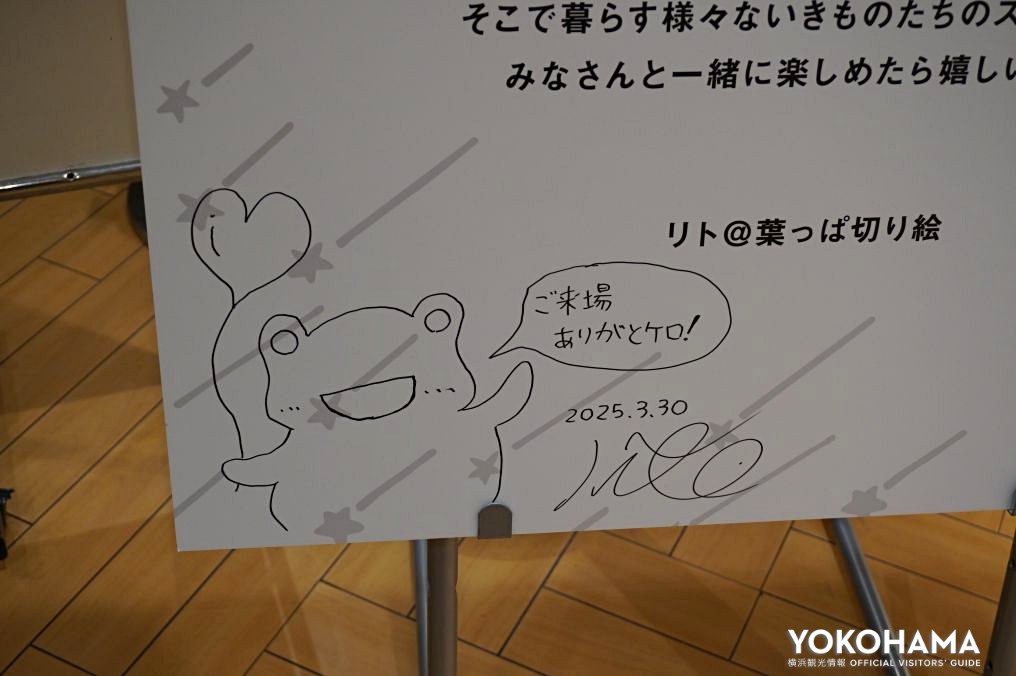 そこで暮らす様々ないきものたちのス
みなさんと一緒に楽しめたら嬉しい
リト@葉っぱ切り絵
ご来場
ありがとケロ!
2025.3.30
YOKOHAMA
横浜観光情報 OFFICIAL VISITORS' GUIDE